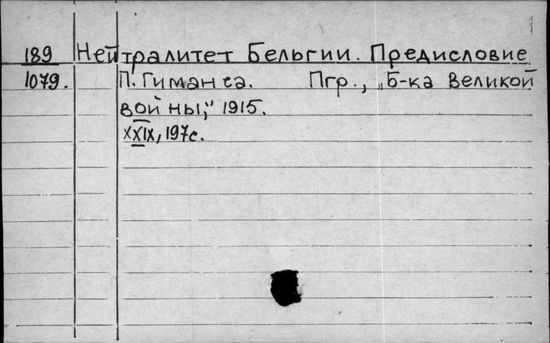 189 Нейтралитет Бельгии. Предисловие
1079. П. Гиманса. Пгр., „Б-ка великой
войны," 1915.
XXIX, 197с.